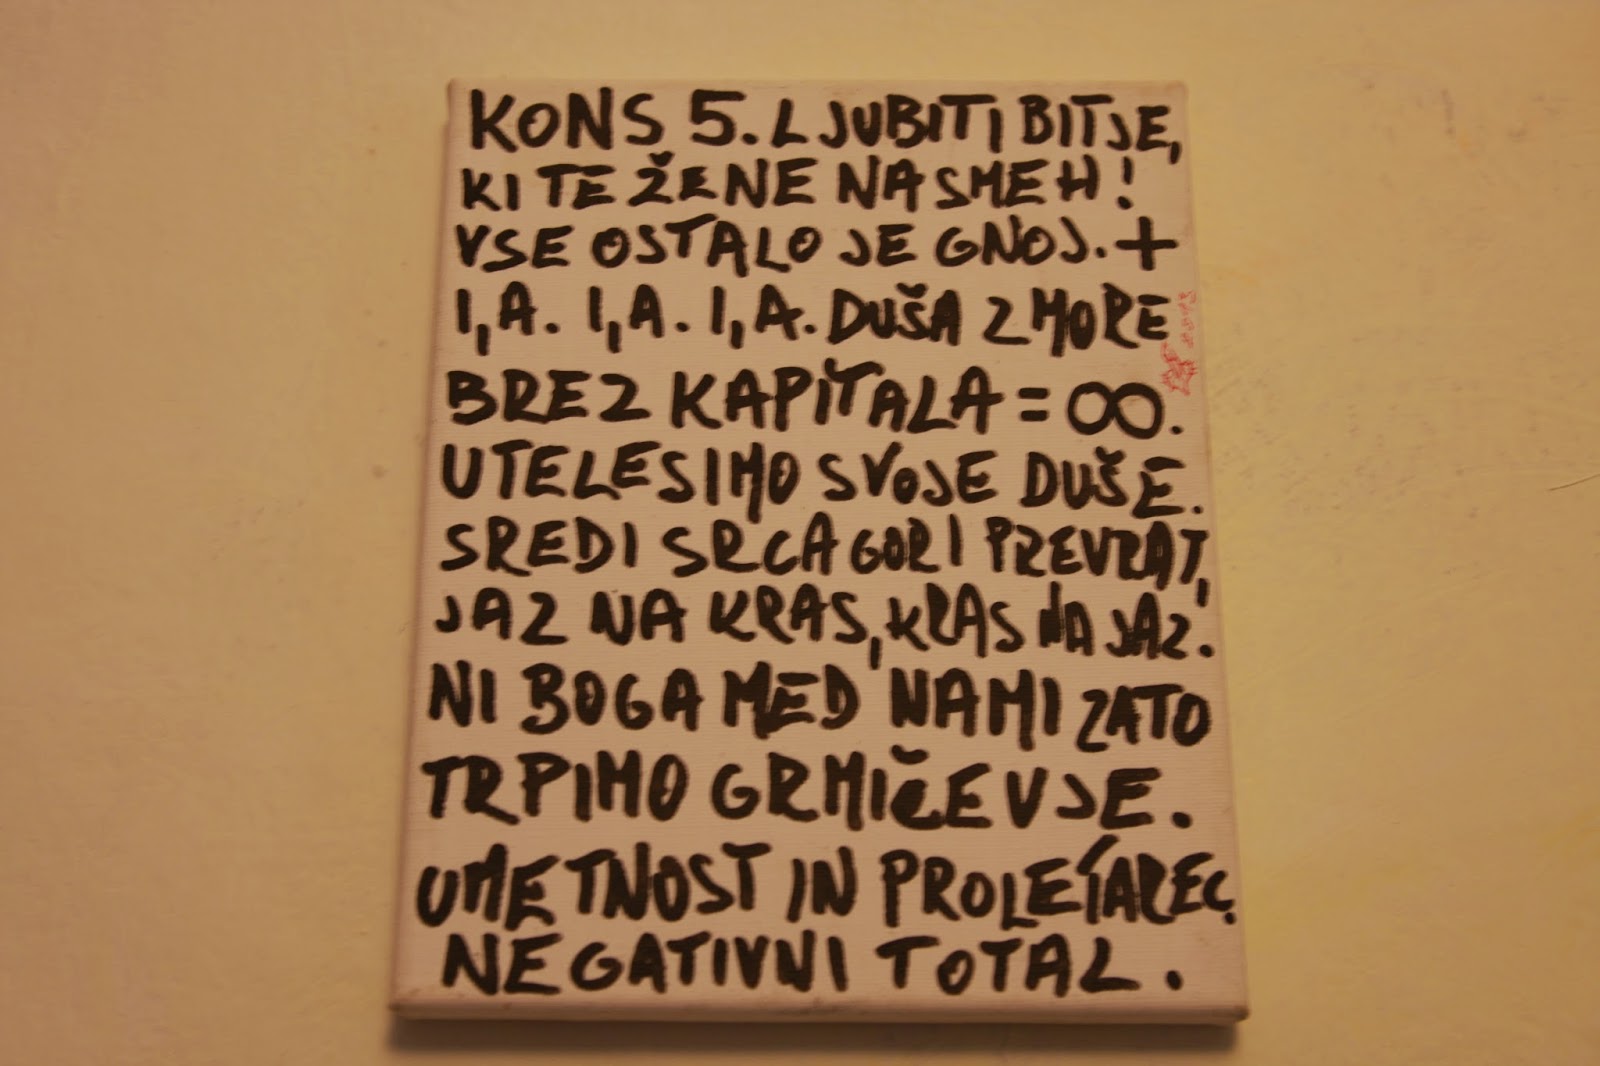 KONS 5. LJUBITI BITJE,
KI TE ŽENE NA SMEH!
VSE OSTALO JE GNOJ. +
I, A. I, A. I, A. DUŠA ZMORE
BREZ KAPITALA = ∞.
UTELESIMO SVOJE DUŠE.
SREDI SRCA GORI PREVRAT,
JAZ NA KRAS, KRAS NA JAZ.
NI BOGA MED NAMI ZATO
TRPIMO GRMIČEVJE.
UMETNOST IN PROLETAREC.
NEGATIVNI TOTAL.